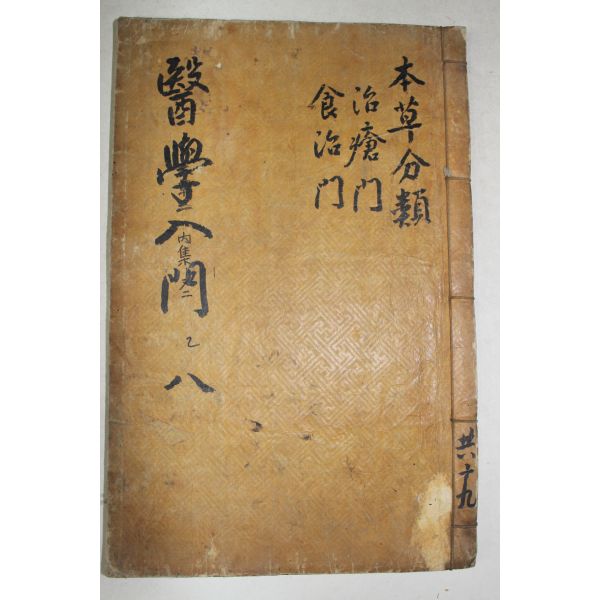 本草分類
治瘡門
食治門
醫學入門 八
內集 二
共十九